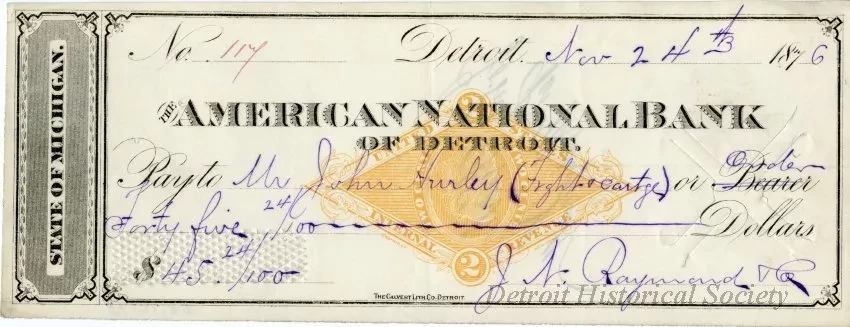 STATE OF MICHIGAN.
No. 117 Detroit. Nov 24th 1876
THE AMERICAN NATIONAL BANK
OF DETROIT.
Pay to Mr John Hurley (Fght & cartge) or Bearer Order
Forty five 24/100 Dollars
$45 24/100
UNITED STATES
INTERNAL REVENUE
2
2
J. N. Raymond & Co
THE CALVERT LITH. CO. DETROIT.
Detroit Historical Society